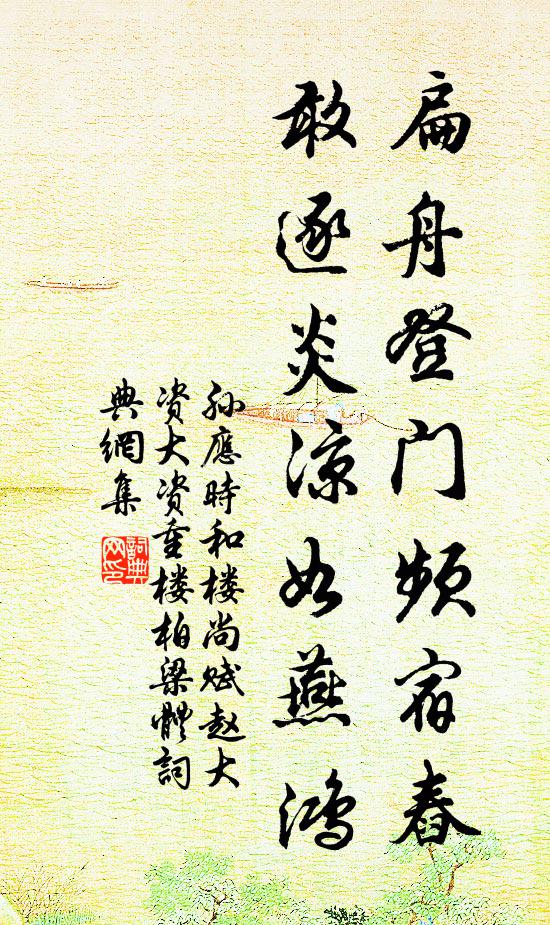 扁舟登门频宿舂
敢逐炎凉如燕鸿
孙應時和楼尚赋赵大
资大资重楼柏梁體詞
典網集
詞典
网印